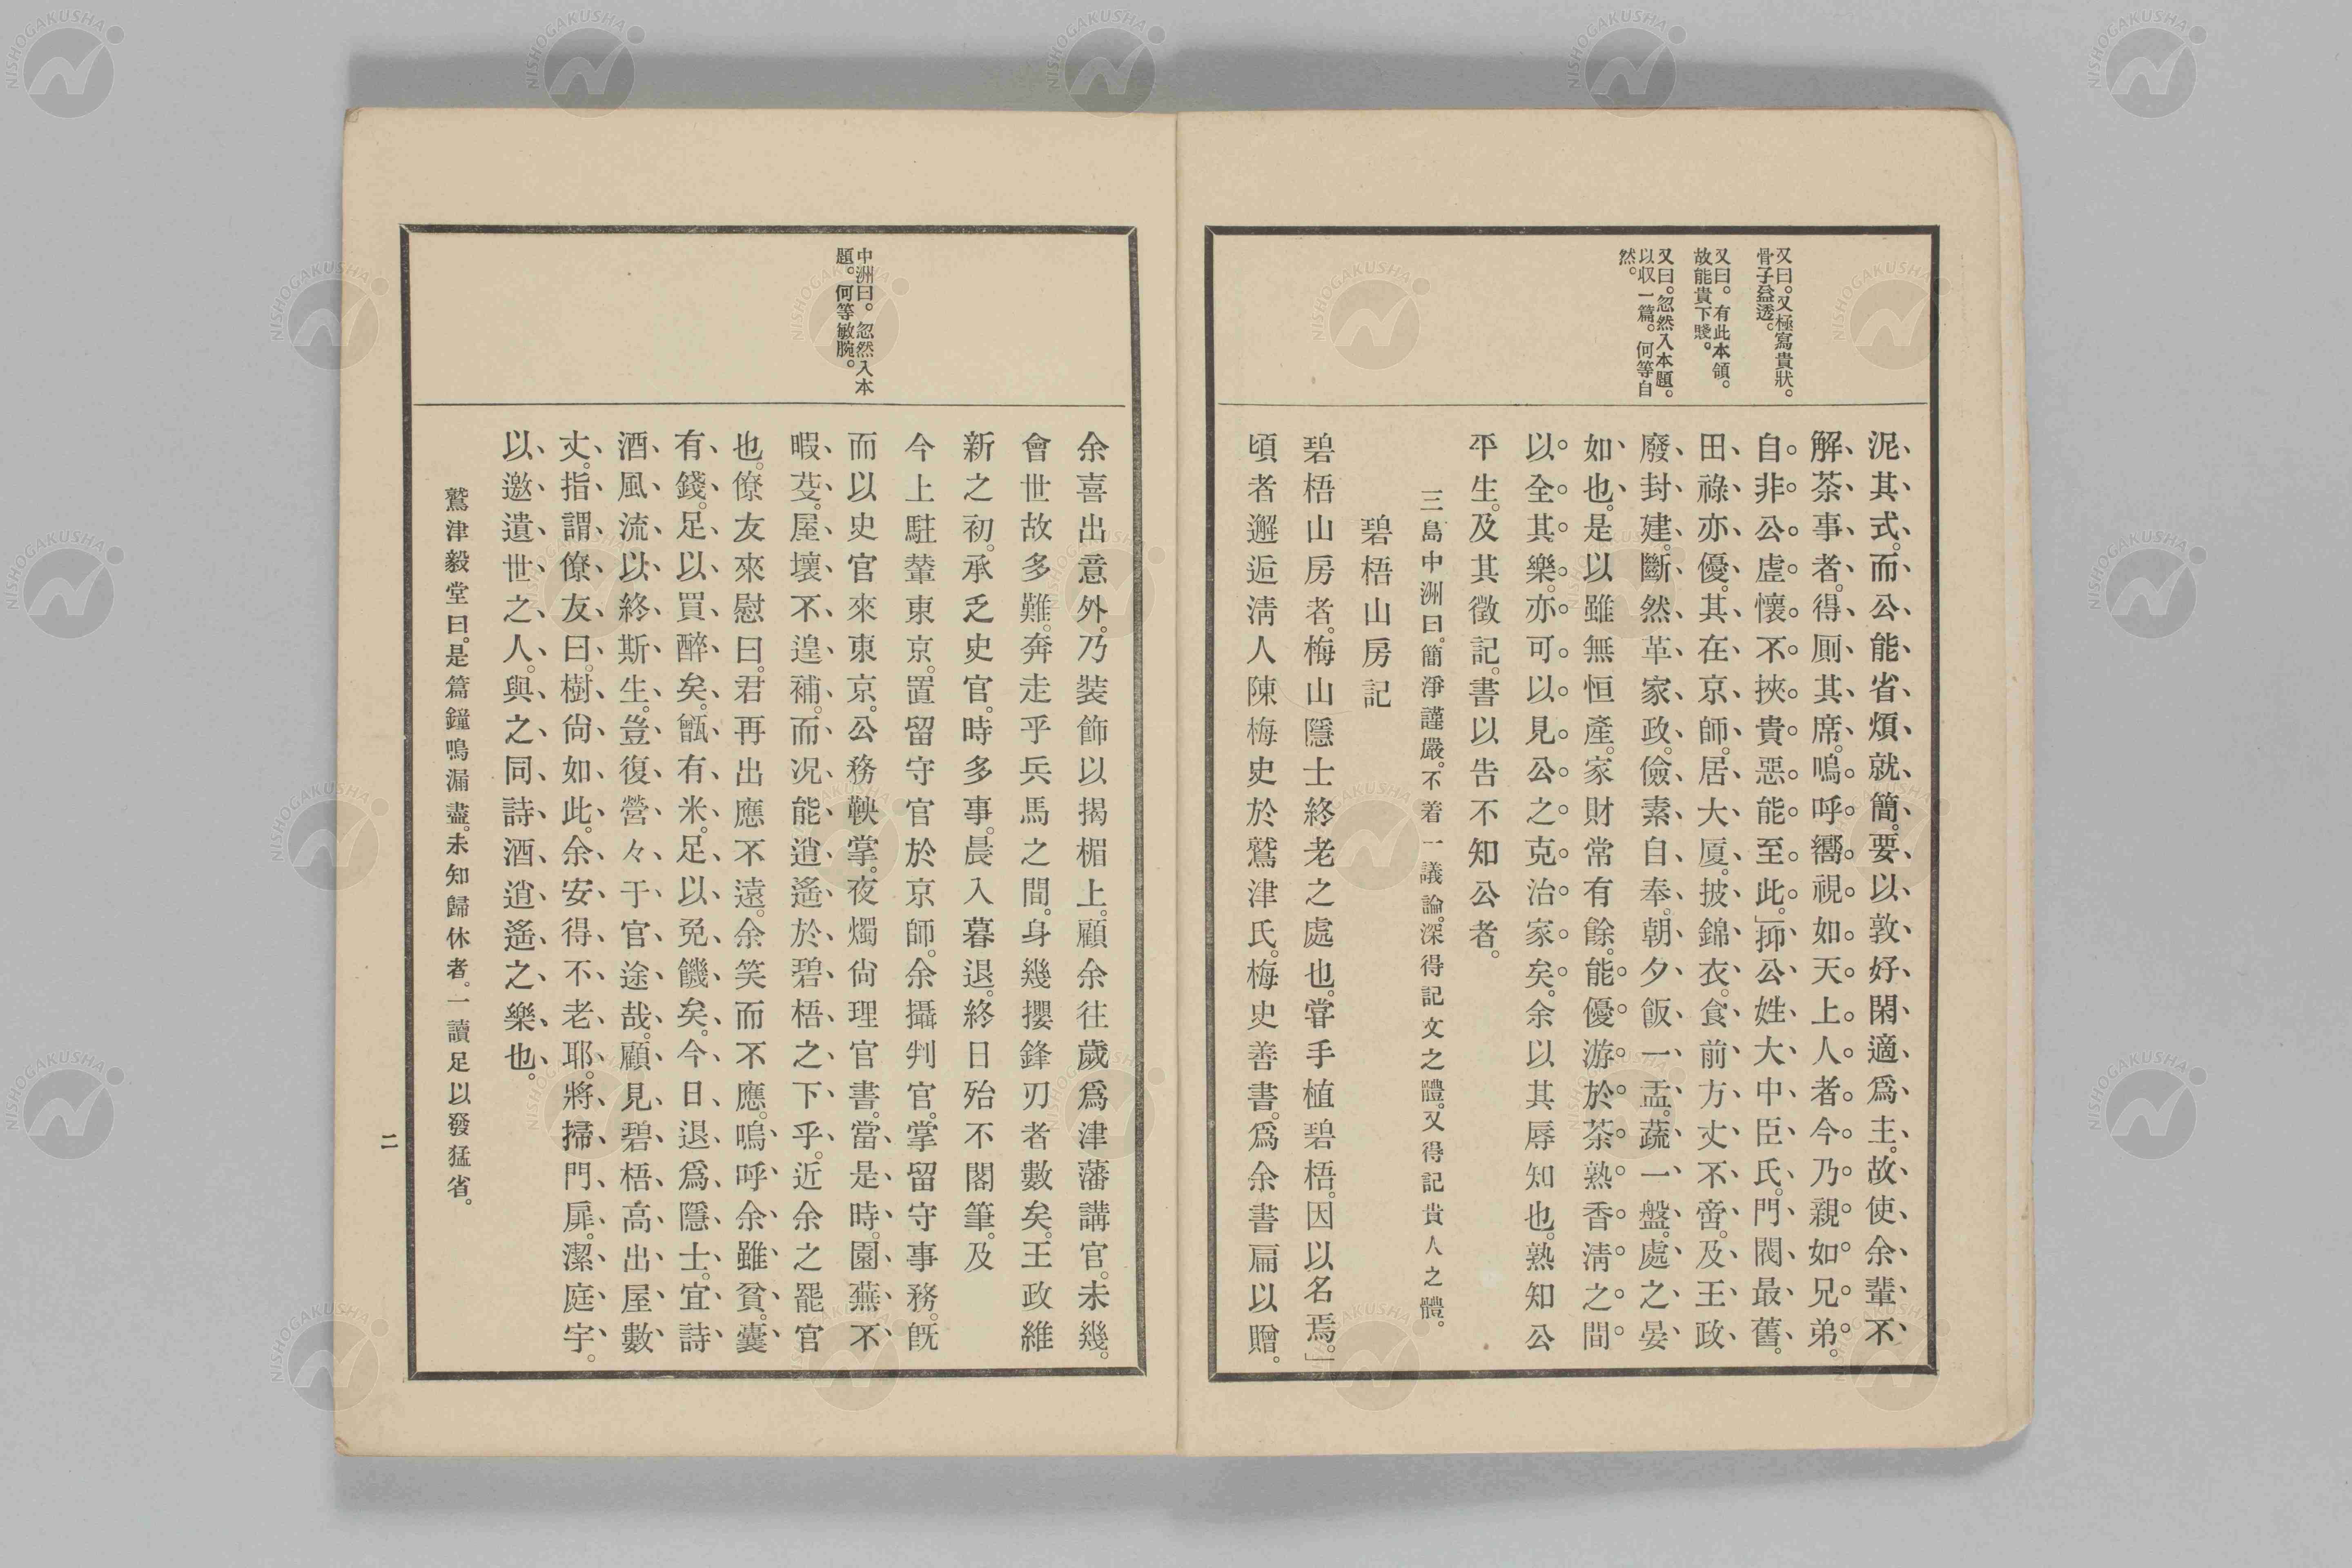 又曰。又極寫貴狀。
骨子益透。
又曰。有此本領。
故能貴下賤。
又曰。忽然入本題。
以収一篇。何等自
然。
泥其式。而公能省煩就簡。要以敦好閑適爲主。故使余輩不
解茶事者。得厠其席。嗚呼嚮視如天上人者。今乃親如兄弟。
自非公虛懷不挾貴。惡能至此。」抑公姓大中臣氏。門閥最舊。
田祿亦優。其在京師。居大厦。披錦衣。食前方丈不啻。及王政
廢封建。斷然革家政。儉素自奉。朝夕飯一盂。蔬一盤。處之晏
如也。是以雖無恒產。家財常有餘。能優游於茶熟香淸之間
以全其樂。亦可以見公之克治家矣。余以其辱知也。熟知公
平生。及其徵記。書以告不知公者。
三島中洲曰。簡淨謹嚴。不着一議論。深得記文之體。又得記貴人之體。
碧梧山房記
碧梧山房者。梅山隱士終老之處也。甞手植碧梧。因以名焉。」
頃者邂逅淸人陳梅史於鷲津氏。梅史善書。爲余書扁以贈。
中洲曰。忽然入本
題。何等敏腕。
余喜出意外。乃裝飾以揭楣上。顧余往歲爲津藩講官。未幾。
會世故多難。奔走乎兵馬之間。身幾攖鋒刃者數矣。王政維
新之初。承乏史官。時多事。晨入暮退。終日殆不閣筆。及
今上駐輦東京。置留守官於京師。余攝判官。掌留守事務。旣
而以史官來東京。公務鞅掌。夜燭尙理官書。當是時。園蕪不
暇芟。屋壞不遑補。而况能逍遙於碧梧之下乎。近余之罷官
也。僚友來慰曰。君再出應不遠。余笑而不應。嗚呼余雖貧。囊
有錢。足以買醉矣。甑有米。足以免饑矣。今日退爲隱士。宜詩
酒風流以終斯生。豈復營々于官途哉。顧見碧梧高出屋數
丈。指謂僚友曰。樹尙如此。余安得不老耶。將掃門扉。潔庭宇。
以邀遺世之人。與之同詩酒逍遙之樂也。
鷲津毅堂曰。是篇鐘鳴漏盡。未知歸休者。一讀足以發猛省。
二
NISHOGAKUSHA